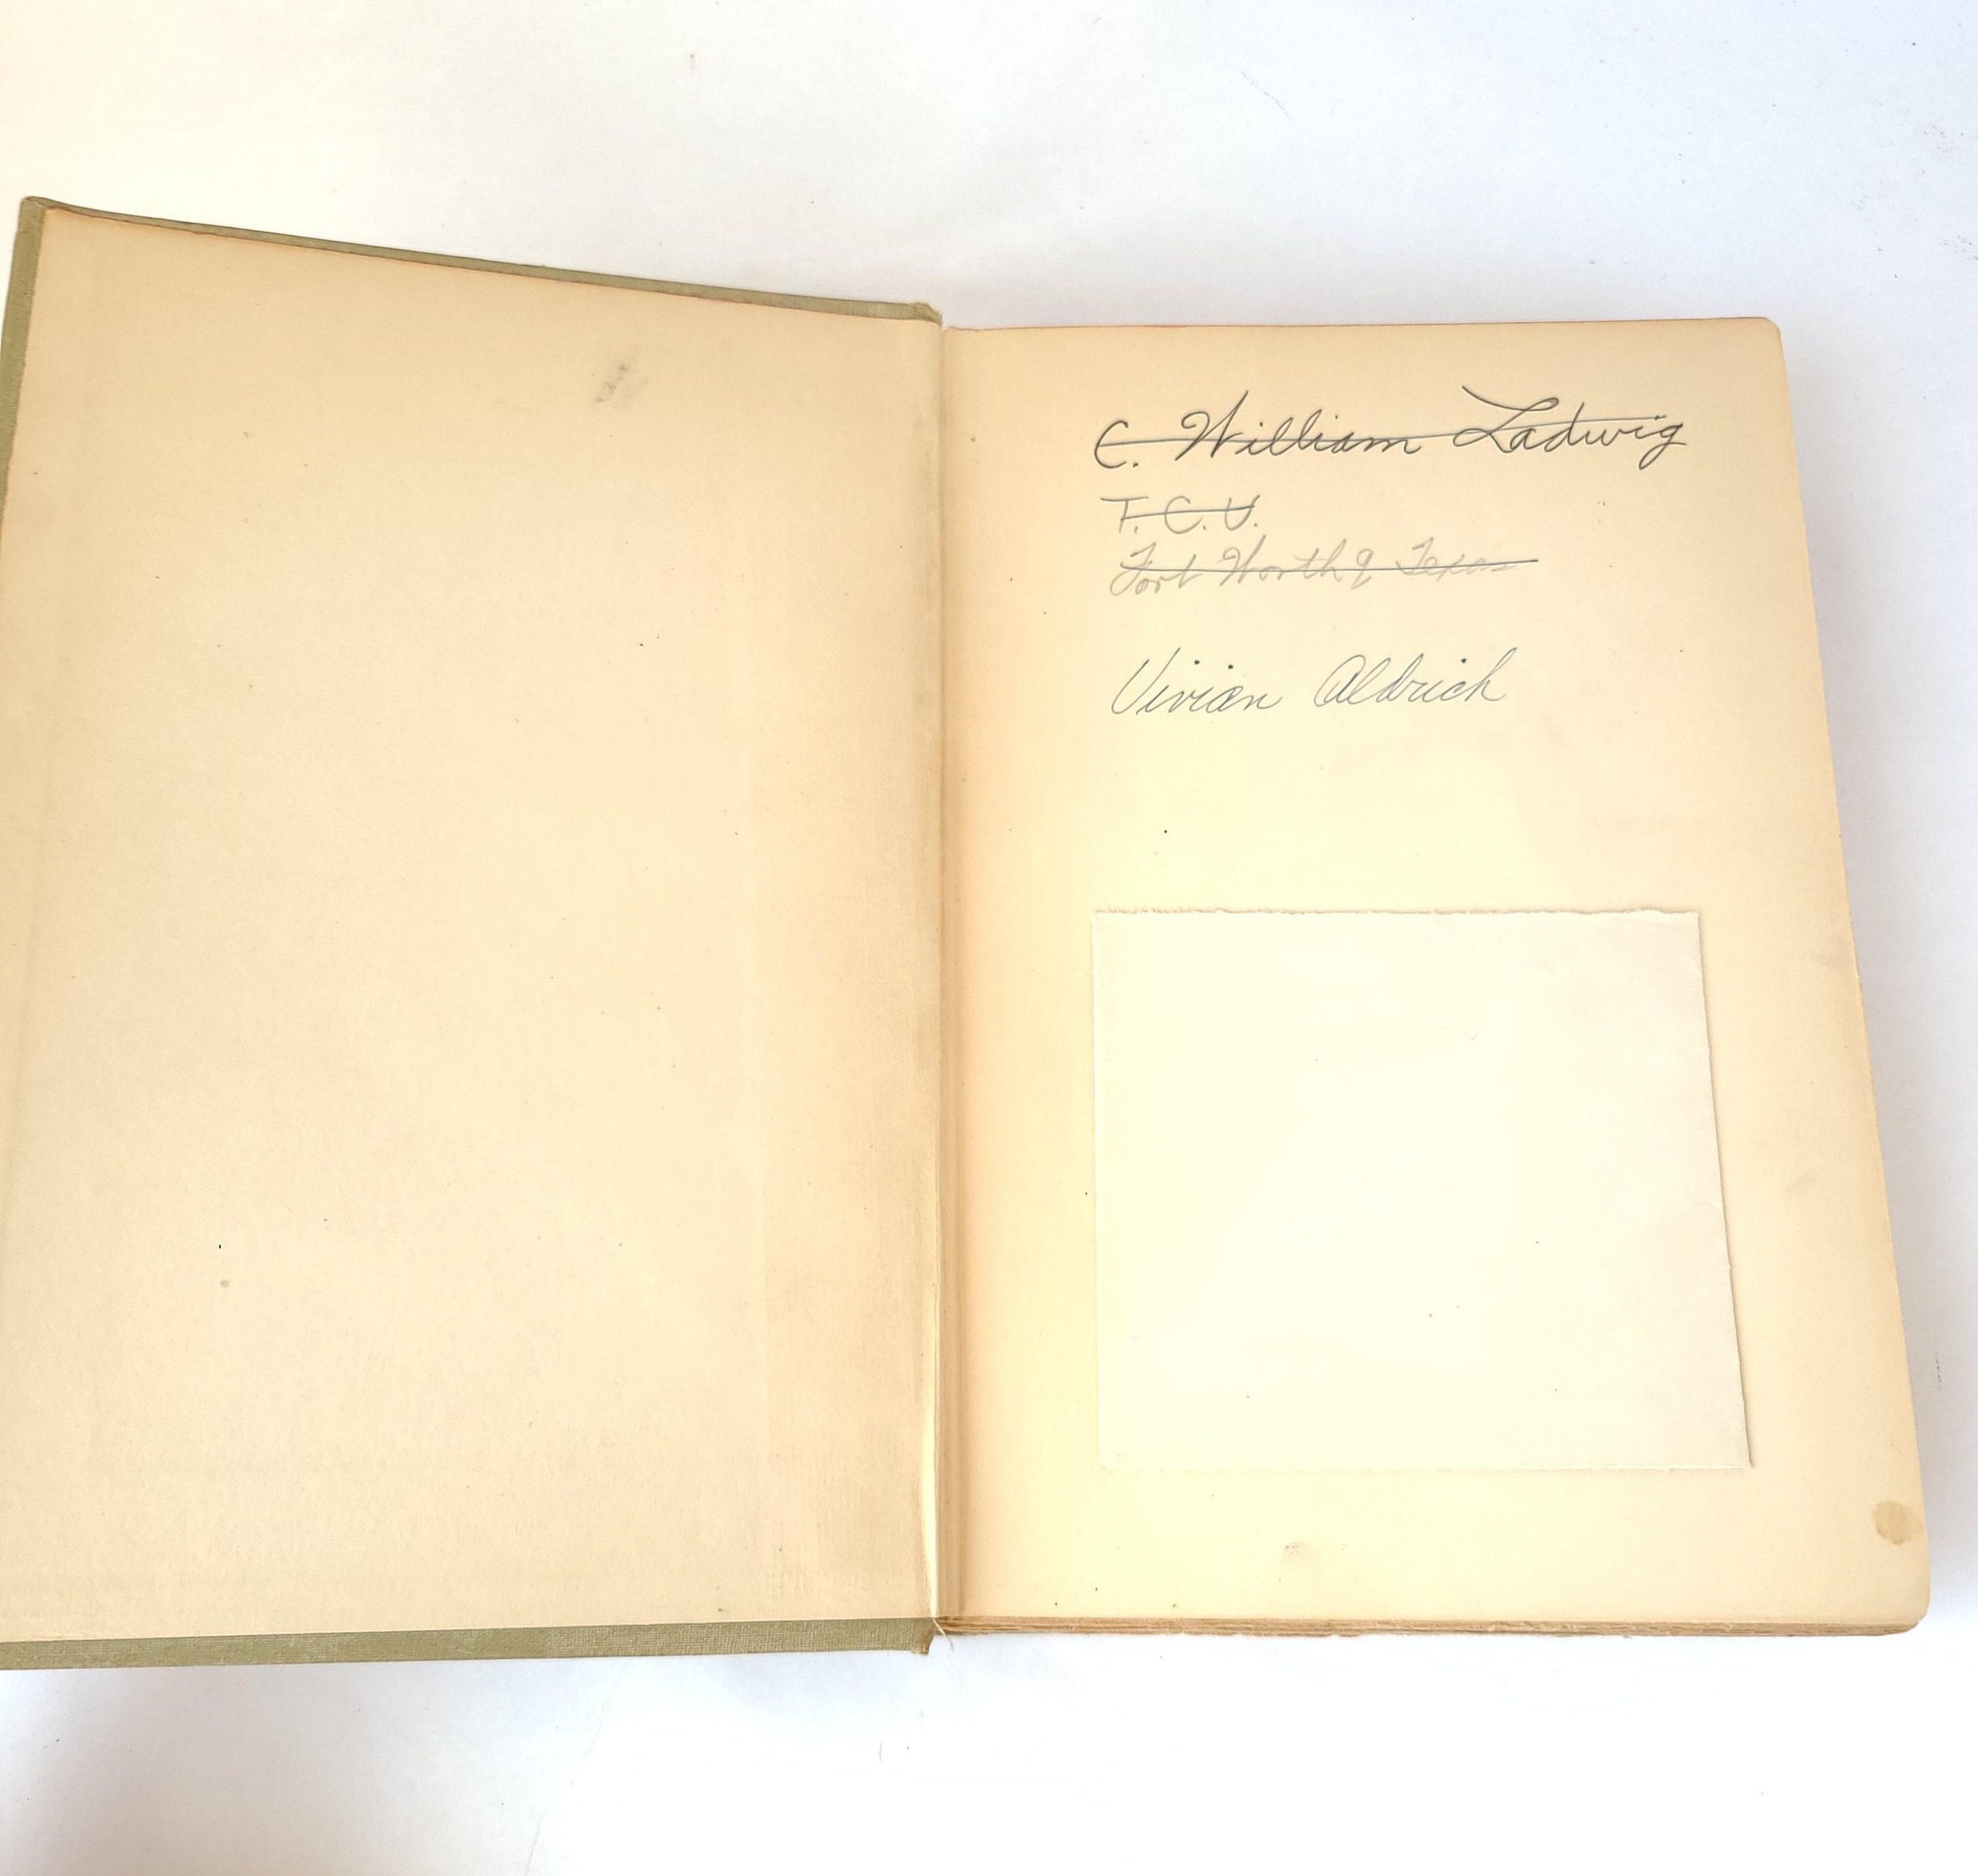 C. William Ladwig
T. C. U.
Fort Worth 9 Texas
Vivian Aldrich